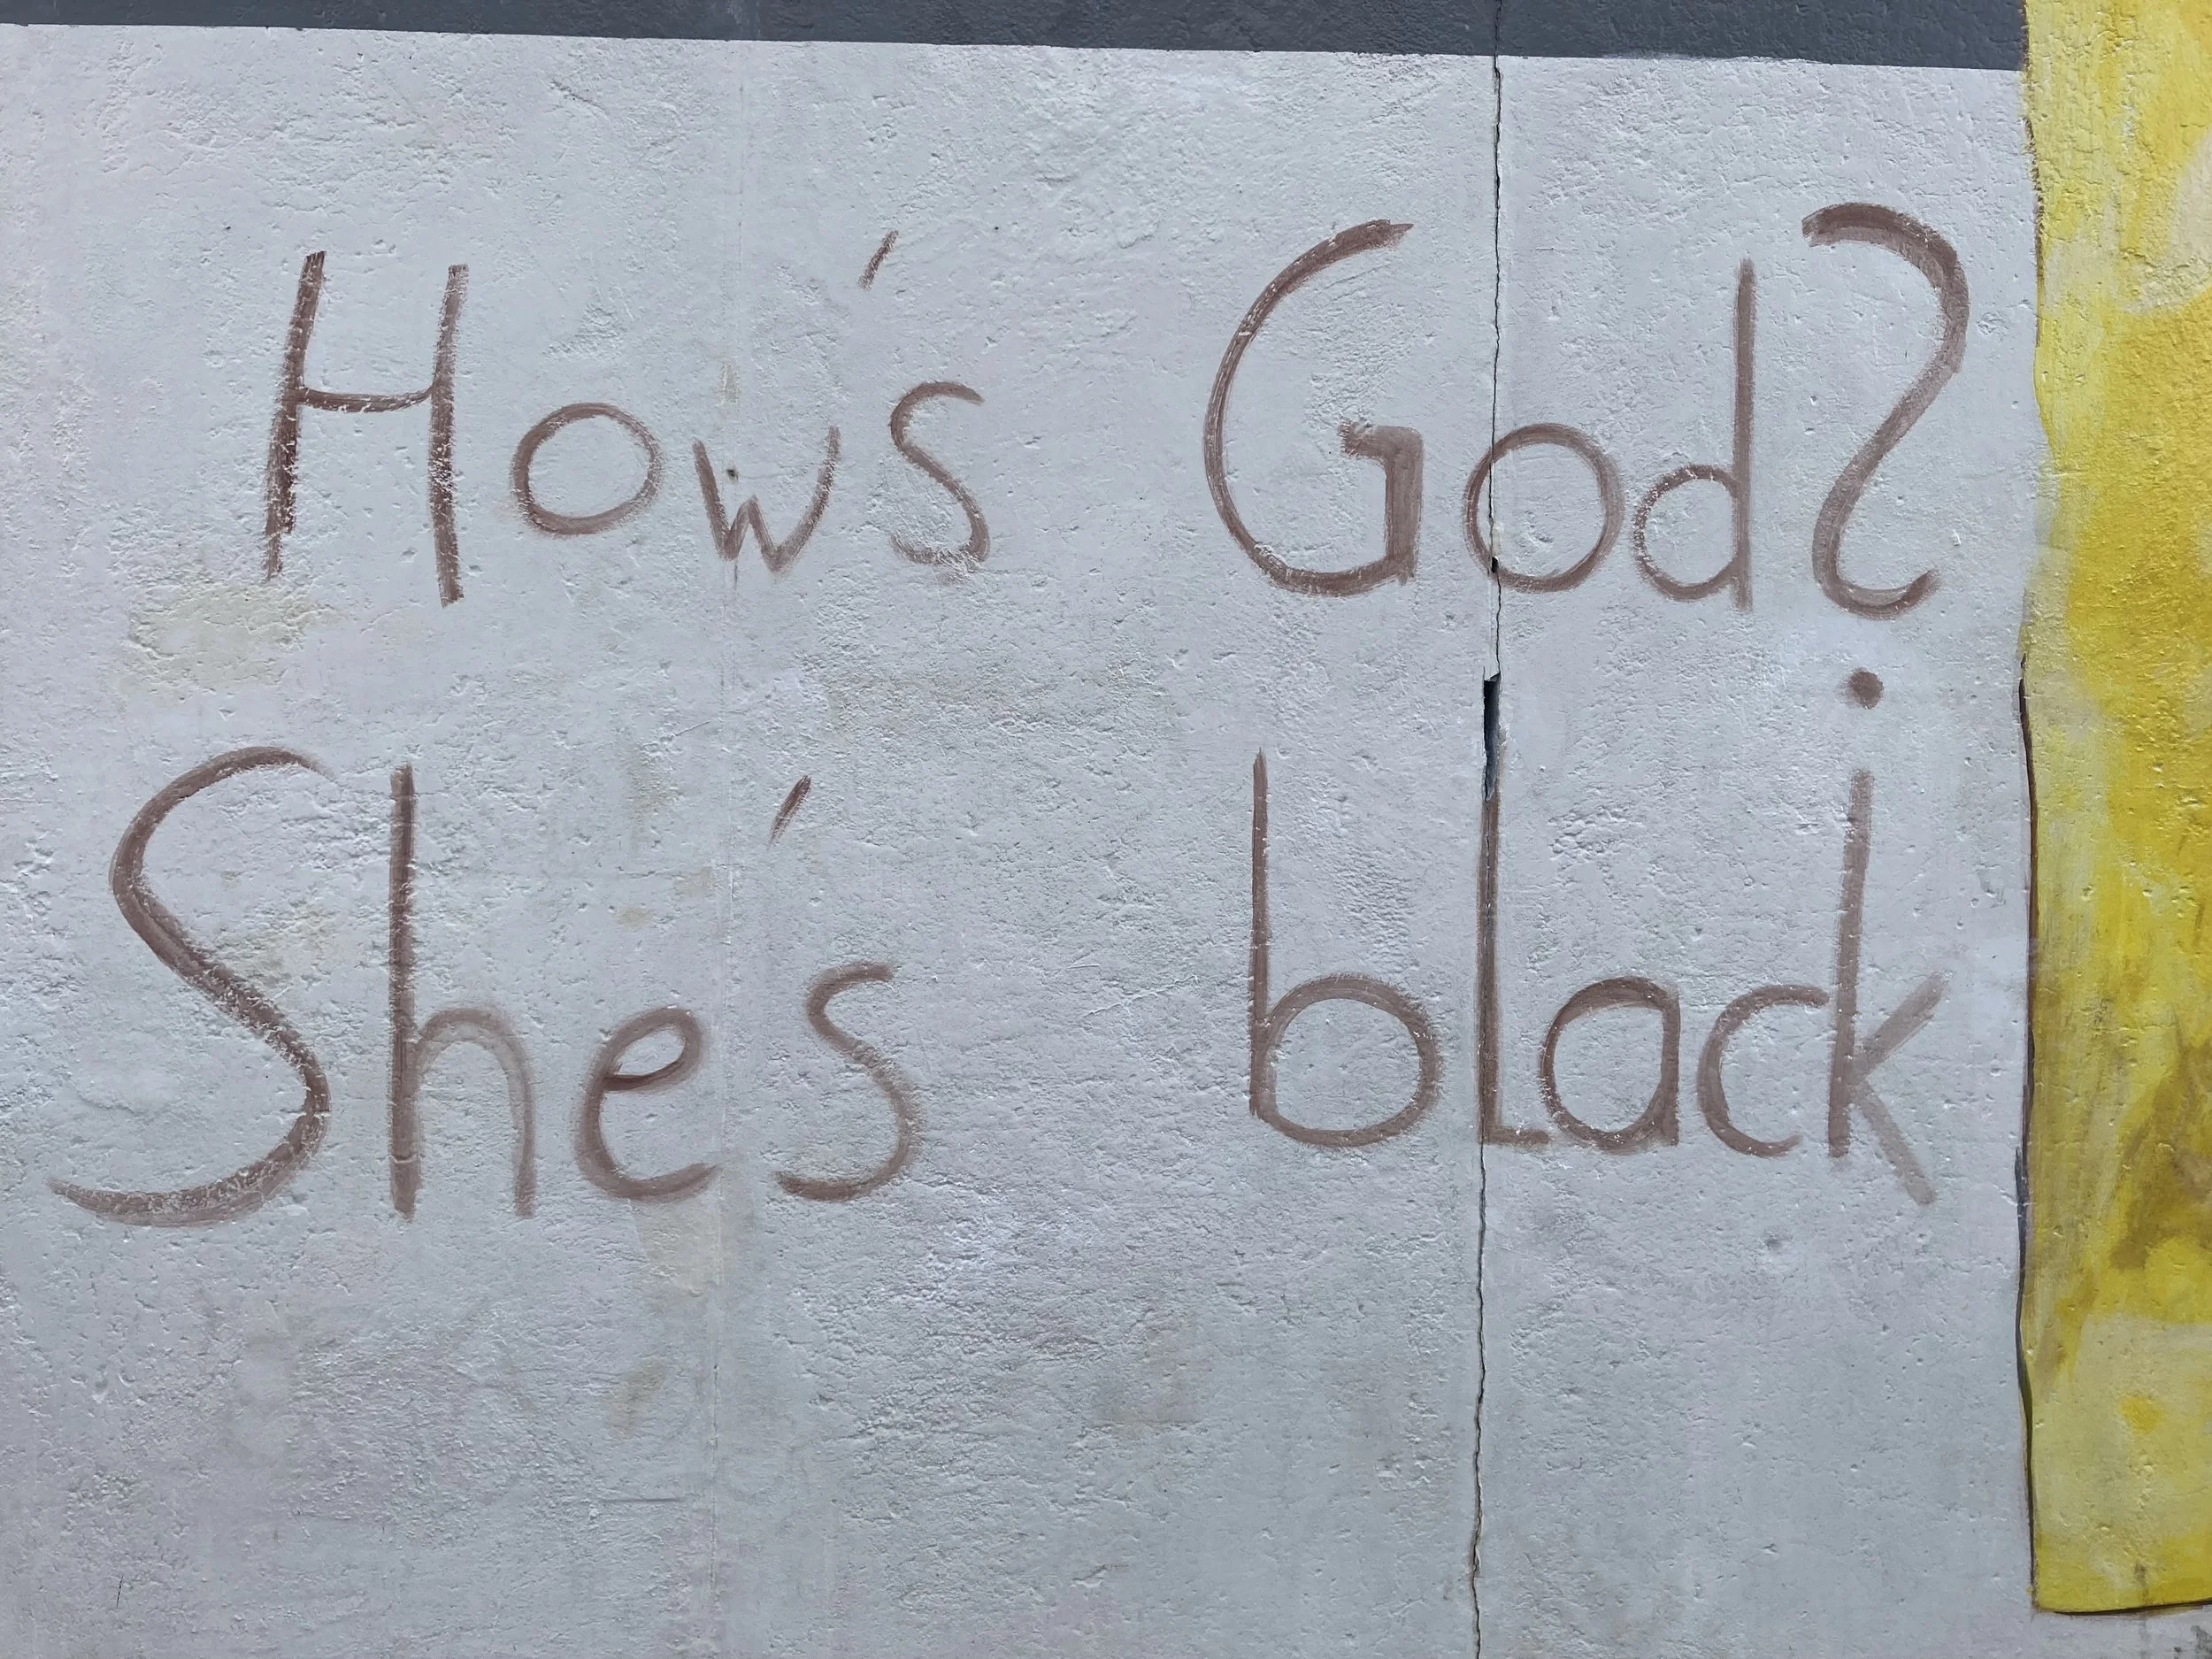 How's God?
She's black